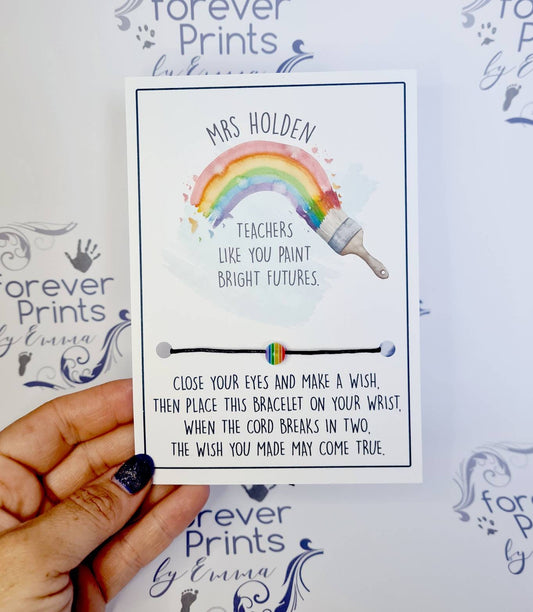 forever
Prints
by Emma
forever
Prints
by Emma
MRS HOLDEN
TEACHERS
LIKE YOU PAINT
BRIGHT FUTURES.
CLOSE YOUR EYES AND MAKE A WISH,
THEN PLACE THIS BRACELET ON YOUR WRIST,
WHEN THE CORD BREAKS IN TWO,
THE WISH YOU MADE MAY COME TRUE.
forever
Prints
by Emma